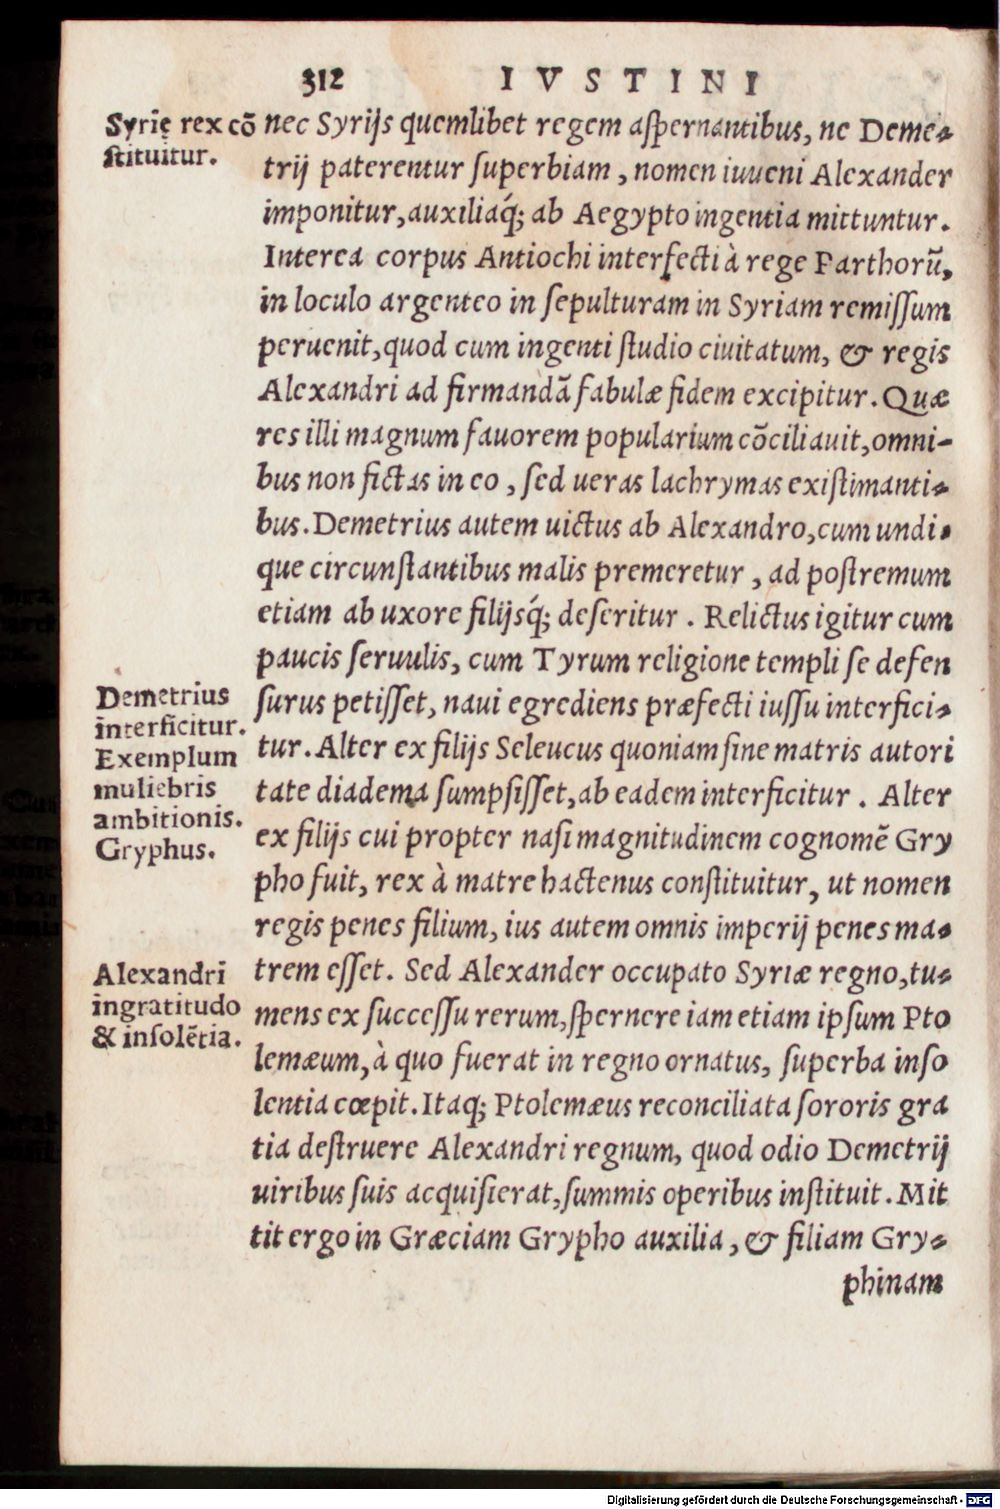 312 IVSTINI
Syrię rex cō
stituitur.
nec Syrijs quemlibet regem aspernantibus, ne Deme-
trij paterentur superbiam, nomen iuueni Alexander
imponitur, auxiliaq́; ab Aegypto ingentia mittuntur.
Interea corpus Antiochi interfecti à rege Parthorū,
in loculo argenteo in sepulturam in Syriam remissum
peruenit, quod cum ingenti studio ciuitatum, & regis
Alexandri ad firmandā fabulæ fidem excipitur. Quæ
res illi magnum fauorem popularium cōciliauit, omni-
bus non fictas in eo, sed ueras lachrymas existimanti-
bus. Demetrius autem uictus ab Alexandro, cum undi-
que circunstantibus malis premeretur, ad postremum
etiam ab uxore filijsq́; deseritur. Relictus igitur cum
paucis seruulis, cum Tyrum religione templi se defen
Demetrius
interficitur.
Exemplum
muliebris
ambitionis.
Gryphus.
surus petisset, naui egrediens præfecti iussu interfici-
tur. Alter ex filijs Seleucus quoniam sine matris autori
tate diadema sumpsisset, ab eadem interficitur. Alter
ex filijs cui propter nasi magnitudinem cognomē Gry
pho fuit, rex à matre hactenus constituitur, ut nomen
regis penes filium, ius autem omnis imperij penes ma-
Alexandri
ingratitudo
& insolētia.
trem esset. Sed Alexander occupato Syriæ regno, tu-
mens ex successu rerum, spernere iam etiam ipsum Pto
lemæum, à quo fuerat in regno ornatus, superba inso
lentia cœpit. Itaq; Ptolemæus reconciliata sororis gra
tia destruere Alexandri regnum, quod odio Demetrij
uiribus suis acquisierat, summis operibus instituit. Mit
tit ergo in Græciam Grypho auxilia, & filiam Gry-
phinam
Digitalisierung gefördert durch die Deutsche Forschungsgemeinschaft - DFG